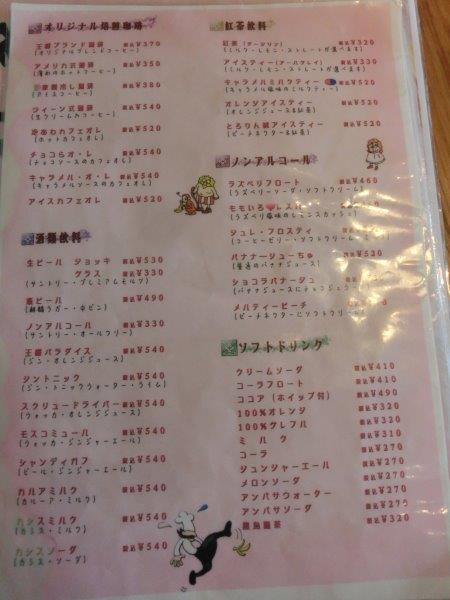 オリジナル焙煎珈琲
王様ブランド珈琲 税込¥370
(オリジナルブレンドコーヒー)
アメリカ式珈琲 税込¥350
(薄めのホットコーヒー)
冷し珈琲 税込¥380
(アイスコーヒー)
ウィーン式珈琲 税込¥540
(生クリームのコーヒー)
泡あわカフェオレ 税込¥520
(ホットカフェオレ)
チョコらオ・レ 税込¥540
(チョコソースのカフェオレ)
キャラメル・オ・レ 税込¥540
(キャラメルソースのカフェオレ)
アイスカフェオレ 税込¥520
酒類飲料
生ビール ジョッキ 税込¥530
グラス 税込¥330
(サントリー・プレミアムモルツ)
瓶ビール 税込¥490
(麒麟ラガー・中ビン)
ノンアルコール 税込¥330
(サントリー・オールフリー)
王様パラダイス 税込¥540
(ジン・オレンジジュース)
ジントニック 税込¥540
(ジン・トニックウォーター・ライム)
スクリュードライバー 税込¥540
(ウォッカ・オレンジジュース)
モスコミュール 税込¥540
(ウォッカ・ジンジャーエール)
シャンディガフ 税込¥540
(ビール・ジンジャーエール)
カルアミルク 税込¥540
(カルーア・ミルク)
カシスミルク 税込¥540
(カシス・ミルク)
カシスソーダ 税込¥540
(カシス・ソーダ)
紅茶飲料
紅茶(ダージリン) 税込¥320
(ミルク・レモン・ストレートが選べます)
アイスティー(アールグレイ) 税込¥320
(ミルク・レモン・ストレートが選べます)
キャラメルミルクティー 税込¥520
(キャラメル風味のミルクティー)
オレンジアイスティー 税込¥520
(オレンジジュース&紅茶)
とろりん桃アイスティー 税込¥520
(ピーチネクター&紅茶)
ノンアルコール
ラズベリフロート ¥460
(ラズベリーソーダ・ソフトクリーム)
ももいろ
(ラズベリ風味のレモンスカッシュ)
ジュレ・フロスティ
(コーヒーゼリー・ソフトクリーム
バナナージューちゅ ¥520
(普通のバナナジュース)
ショコラバナージュ
(バナナジュースにチョコ
メルティーピーチ
(ピーチネクターにソフトクリーム)
ソフトドリンク
クリームソーダ 税込¥410
コーラフロート 税込¥410
ココア(ホイップ付) 税込¥490
100%オレンジ 税込¥320
100%グレフル 税込¥320
ミルク 税込¥310
コーラ 税込¥270
ジュンジャーエール 税込¥270
メロンソーダ 税込¥270
アンバサウォーター 税込¥270
アンバサソーダ 税込¥270
黒烏龍茶 税込¥320